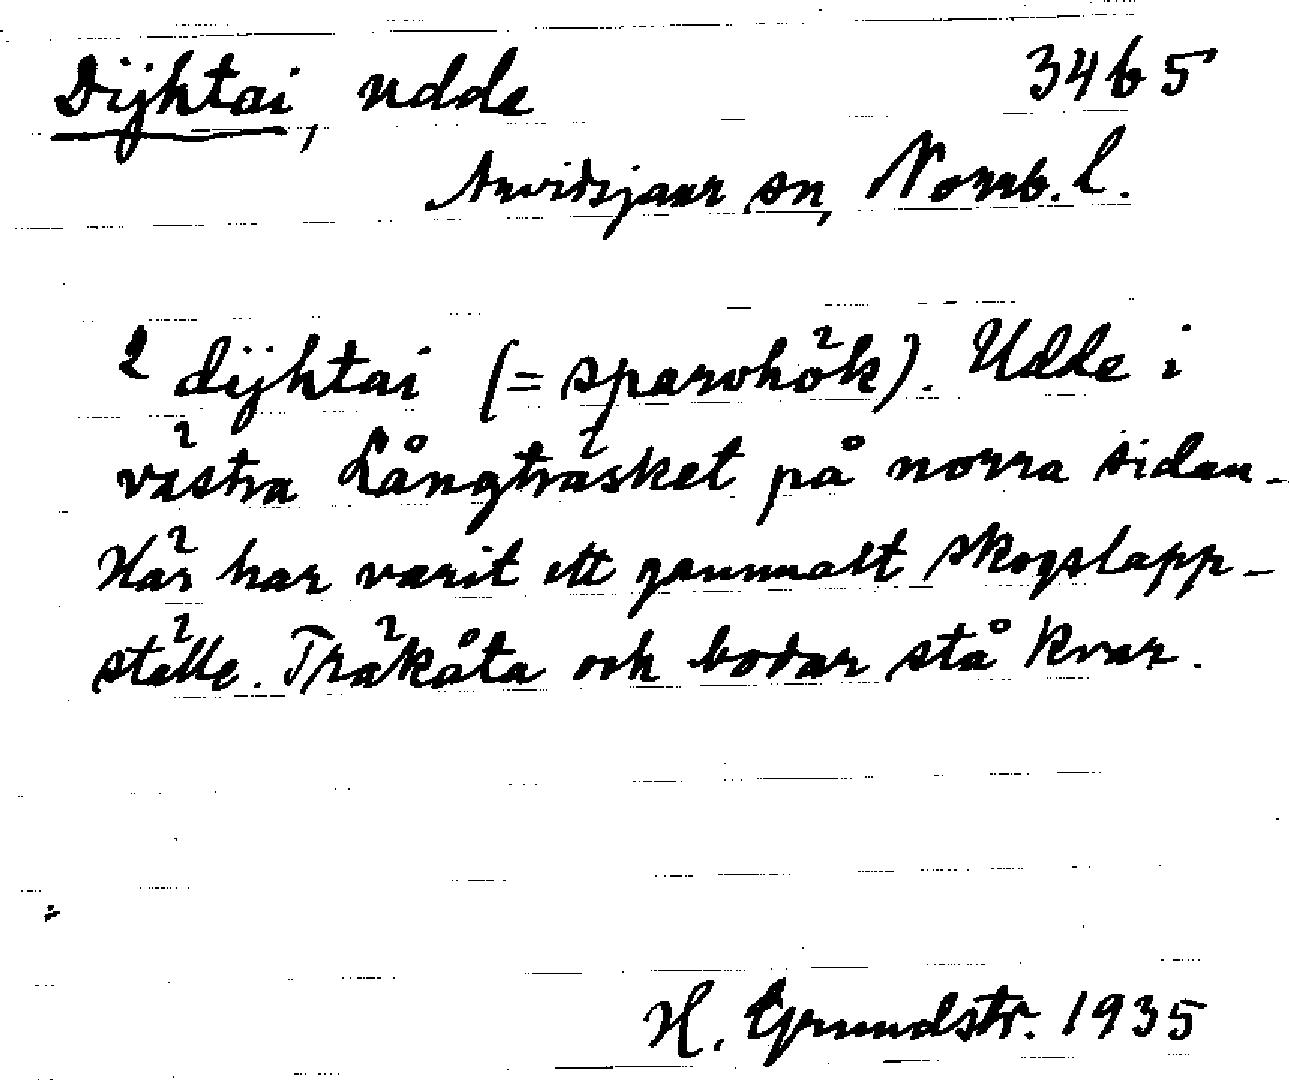 Dijhtai, udde 3465
Arvidsjaur sn, Norrb. l.
² dijhtai (= sparvhök). Udde i
västra Långträsket på norra sidan.
Här har varit ett gammalt skogslapp-
ställe. Träkåta och bodar stå kvar.
H. Grundstr. 1935